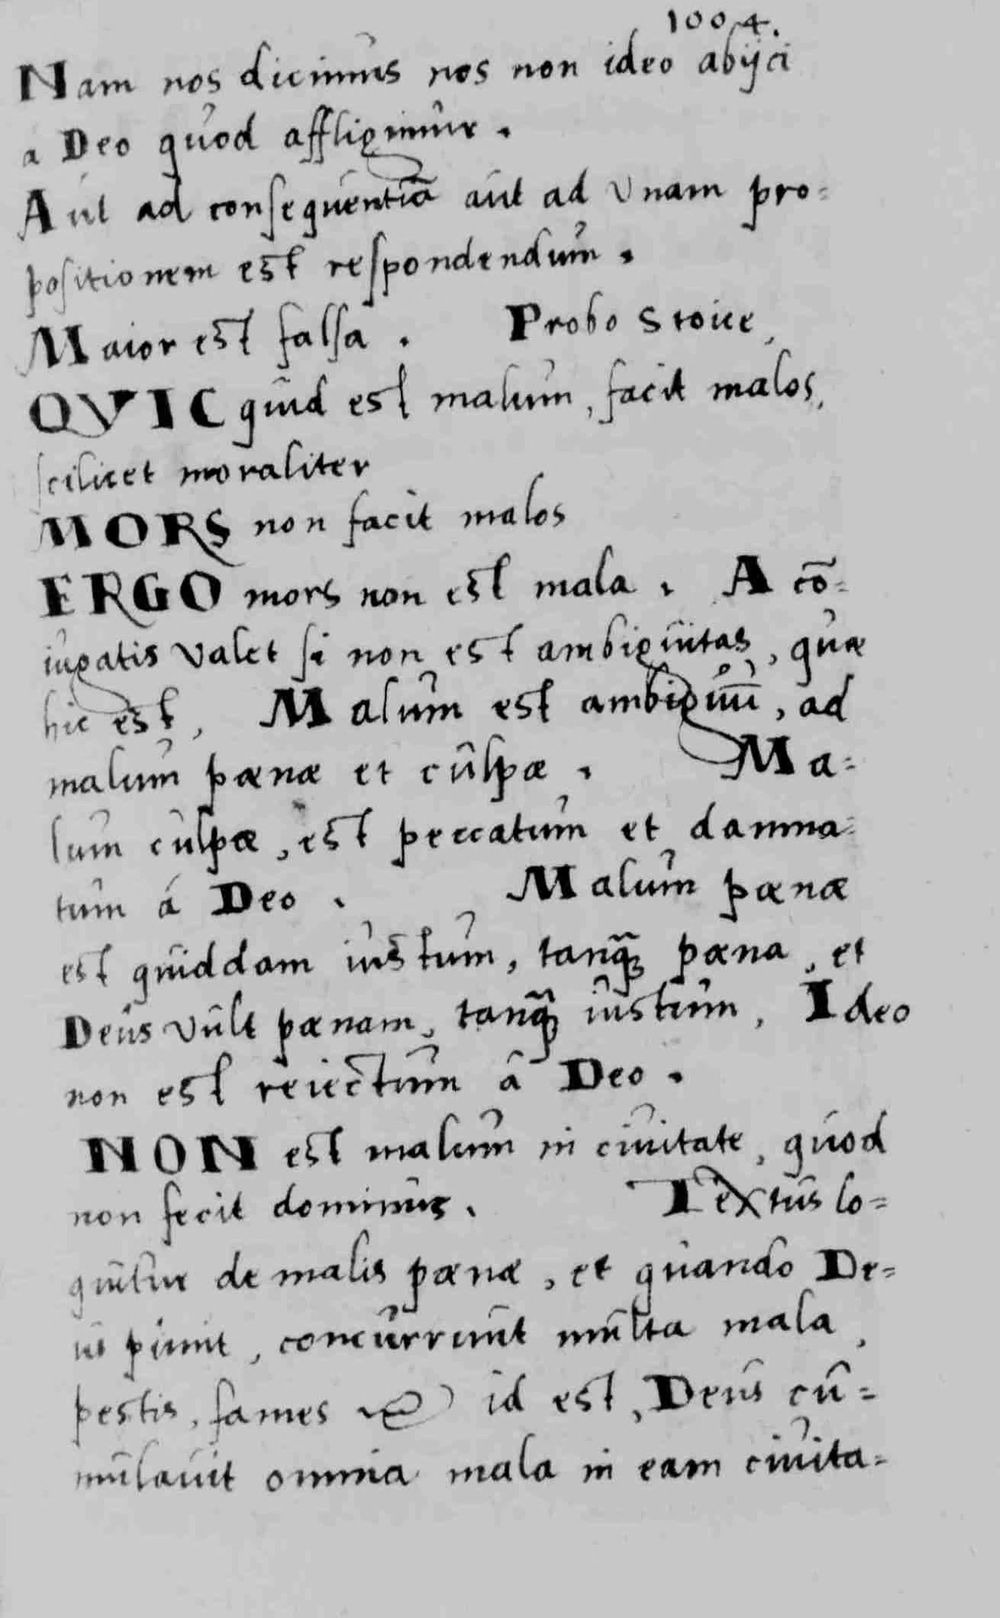 1004.
Nam nos dicimus nos non ideo abijci
a Deo quod affligimur.
Aut ad consequentiã aut ad vnam pro=
positionem est respondendum.
Maior est falsa. Probo Stoice,
QVICquid est malum, facit malos,
scilicet moraliter
MORS non facit malos
ERGO mors non est mala. A cõ=
iugatis valet si non est ambiguitas, quæ
hic est, Malum est ambiguũ, ad
malum pænæ et culpæ. Ma=
lum culpæ, est peccatum et damna=
tum á Deo. Malum pænæ
est quiddam iustum, tanq̃ pæna, et
Deus vult pænam, tanq̃ iustum, Ideo
non est reiectum â Deo.
NON est malum in ciuitate, quod
non fecit dominus. Textus lo=
quitur de malis pænæ, et quando De=
us punit, concurrunt multa mala,
pestis, fames &c id est, Deus cu=
mulauit omnia mala in eam ciuita=